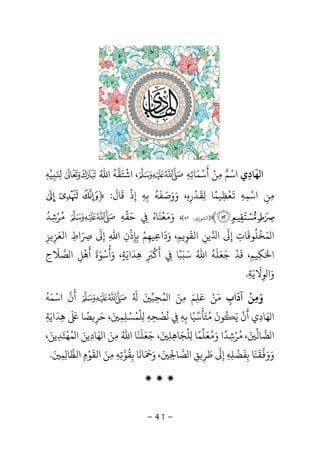 الهادي
الهَادِي اسْمٌ مِنْ أَسْمَائِهِ ﷺ، اشْتَقَّهُ اللهُ تَبَارَكَ وَتَعَالَى لِنَبِيِّهِ
مِنِ اسْمِهِ تَعْظِيمًا لِقَدْرِهِ، وَوَصَفَهُ بِهِ إِذْ قَالَ: ﴿وَإِنَّكَ لَتَهْدِىٓ إِلَىٰ
صِرَٰطٍ مُّسْتَقِيمٍ ۝٥٢﴾ [الشورى: ٥٢]، وَمَعْنَاهُ فِي حَقِّهِ ﷺ مُرْشِدُ
المَخْلُوقَاتِ إِلَى الدِّينِ القَوِيمِ، وَدَاعِيهِمْ بِإِذْنِ اللهِ إِلَى صِرَاطِ العَزِيزِ
الحَكِيمِ، قَدْ جَعَلَهُ اللهُ سَبَبًا فِي أَكْبَرِ هِدَايَةٍ، وَأُسْوَةَ أَهْلِ الصَّلَاحِ
وَالوِلَايَةِ.
وَمِنْ آدَابِ مَنْ عَلِمَ مِنَ المُحِبِّينَ لَهُ ﷺ أَنَّ اسْمَهُ
الهَادِي أَنْ يَكُونَ مُتَأَسِّيًا بِهِ فِي نُصْحِهِ لِلْمُسْلِمِينَ، حَرِيصًا عَلَى هِدَايَةِ
الضَّالِّينَ، وَمُرْشِدًا وَمُعَلِّمًا لِلْجَاهِلِينَ، جَعَلَنَا اللهُ مِنَ الهَادِينَ المُهْتَدِينَ،
وَوَفَّقَنَا بِفَضْلِهِ إِلَى طَرِيقِ الصَّالِحِينَ، وَحَمَانَا بِقُوَّتِهِ مِنَ القَوْمِ الظَّالِمِينَ.
* * *
- 41 -